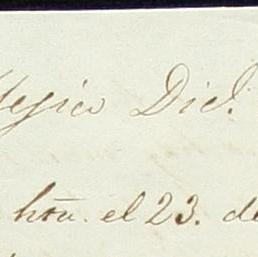 Mejico Dic.
hta. el 23. de